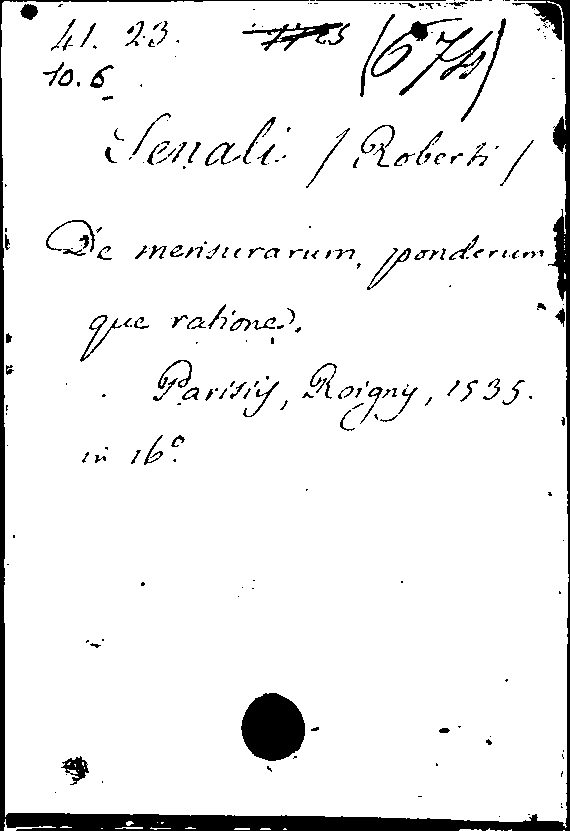 41. 23. (674)
10.6
Senali / Roberti /
De mensurarum, ponderum
que ratione.
Parisiis, Roigny, 1535.
in 16°